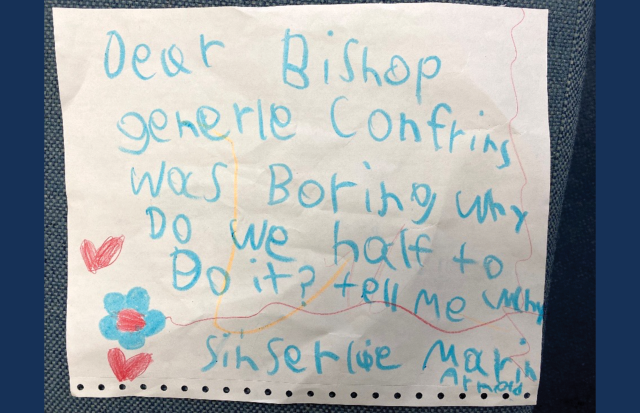 Dear Bishop
generle Confrins
was Boring why
Do we half to
Do it? tell me why
Sinserlie Marin
Arnold